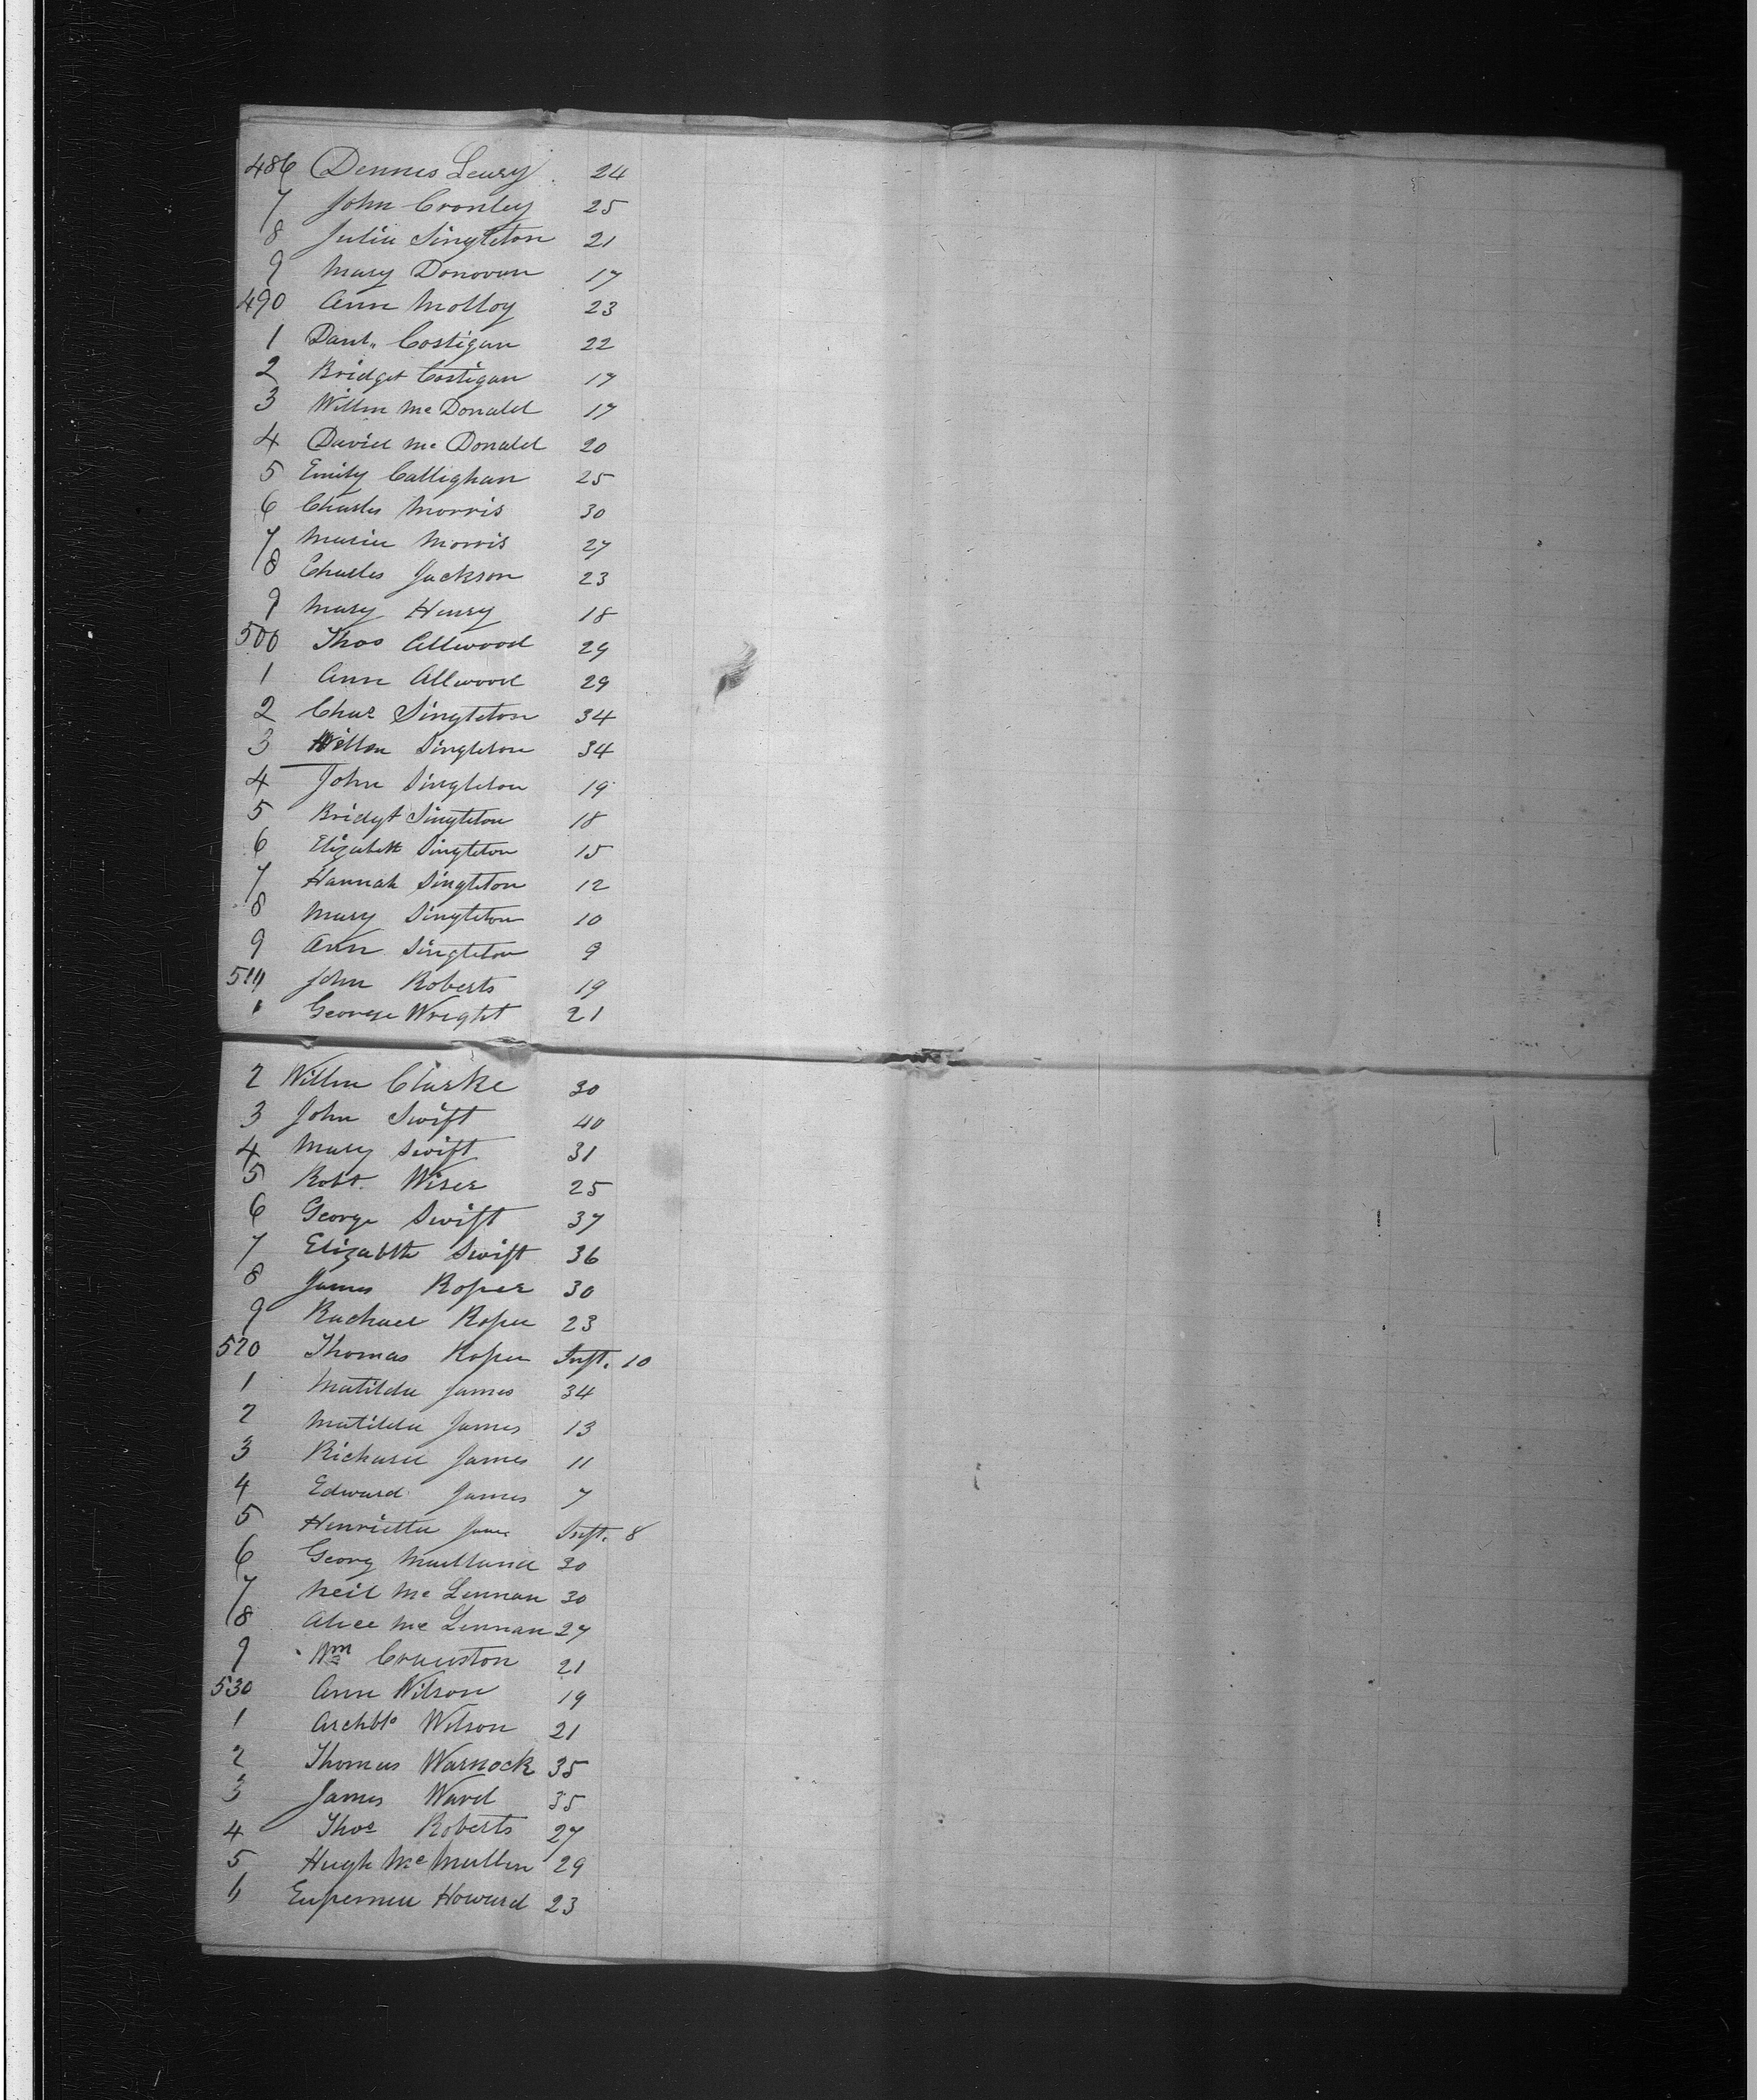 486 Dennis Leary 24
7 John Cronley 25
8 Julia Singleton 21
9 Mary Donovan 17
490 Ann Molloy 23
1 Danl. Costigan 22
2 Bridget Costigan 17
3 Willm McDonald 17
4 David McDonald 20
5 Emily Callighan 25
6 Charles Morris 30
7 Maria Morris 27
8 Charles Jackson 23
9 Mary Henry 18
500 Thos Allwood 29
1 Ann Allwood 29
2 Chas Singleton 34
3 Willm Singleton 34
4 John Singleton 19
5 Bridgt Singleton 18
6 Elizabeth Singleton 15
7 Hannah Singleton 12
8 Mary Singleton 10
9 Ann Singleton 9
510 John Roberts 19
1 George Wright 21
2 Willm Clarke 30
3 John Swift 40
4 Mary Swift 31
5 Robt. Wiser 25
6 George Swift 37
7 Elizabth Swift 36
8 James Roper 30
9 Rachael Roper 23
520 Thomas Roper Inft. 10
1 Matilda James 34
2 Matilda James 13
3 Richard James 11
4 Edward James 7
5 Henrietta James Inft. 8
6 Georg Maitland 30
7 Neil McLennan 30
8 Alice McLennan 27
9 Wm Cranston 21
530 Ann Wilson 19
1 Archbld Wilson 21
2 Thomas Warnock 35
3 James Ward 35
4 Thos Roberts 27
5 Hugh McMullen 29
6 Eupemea Howard 23